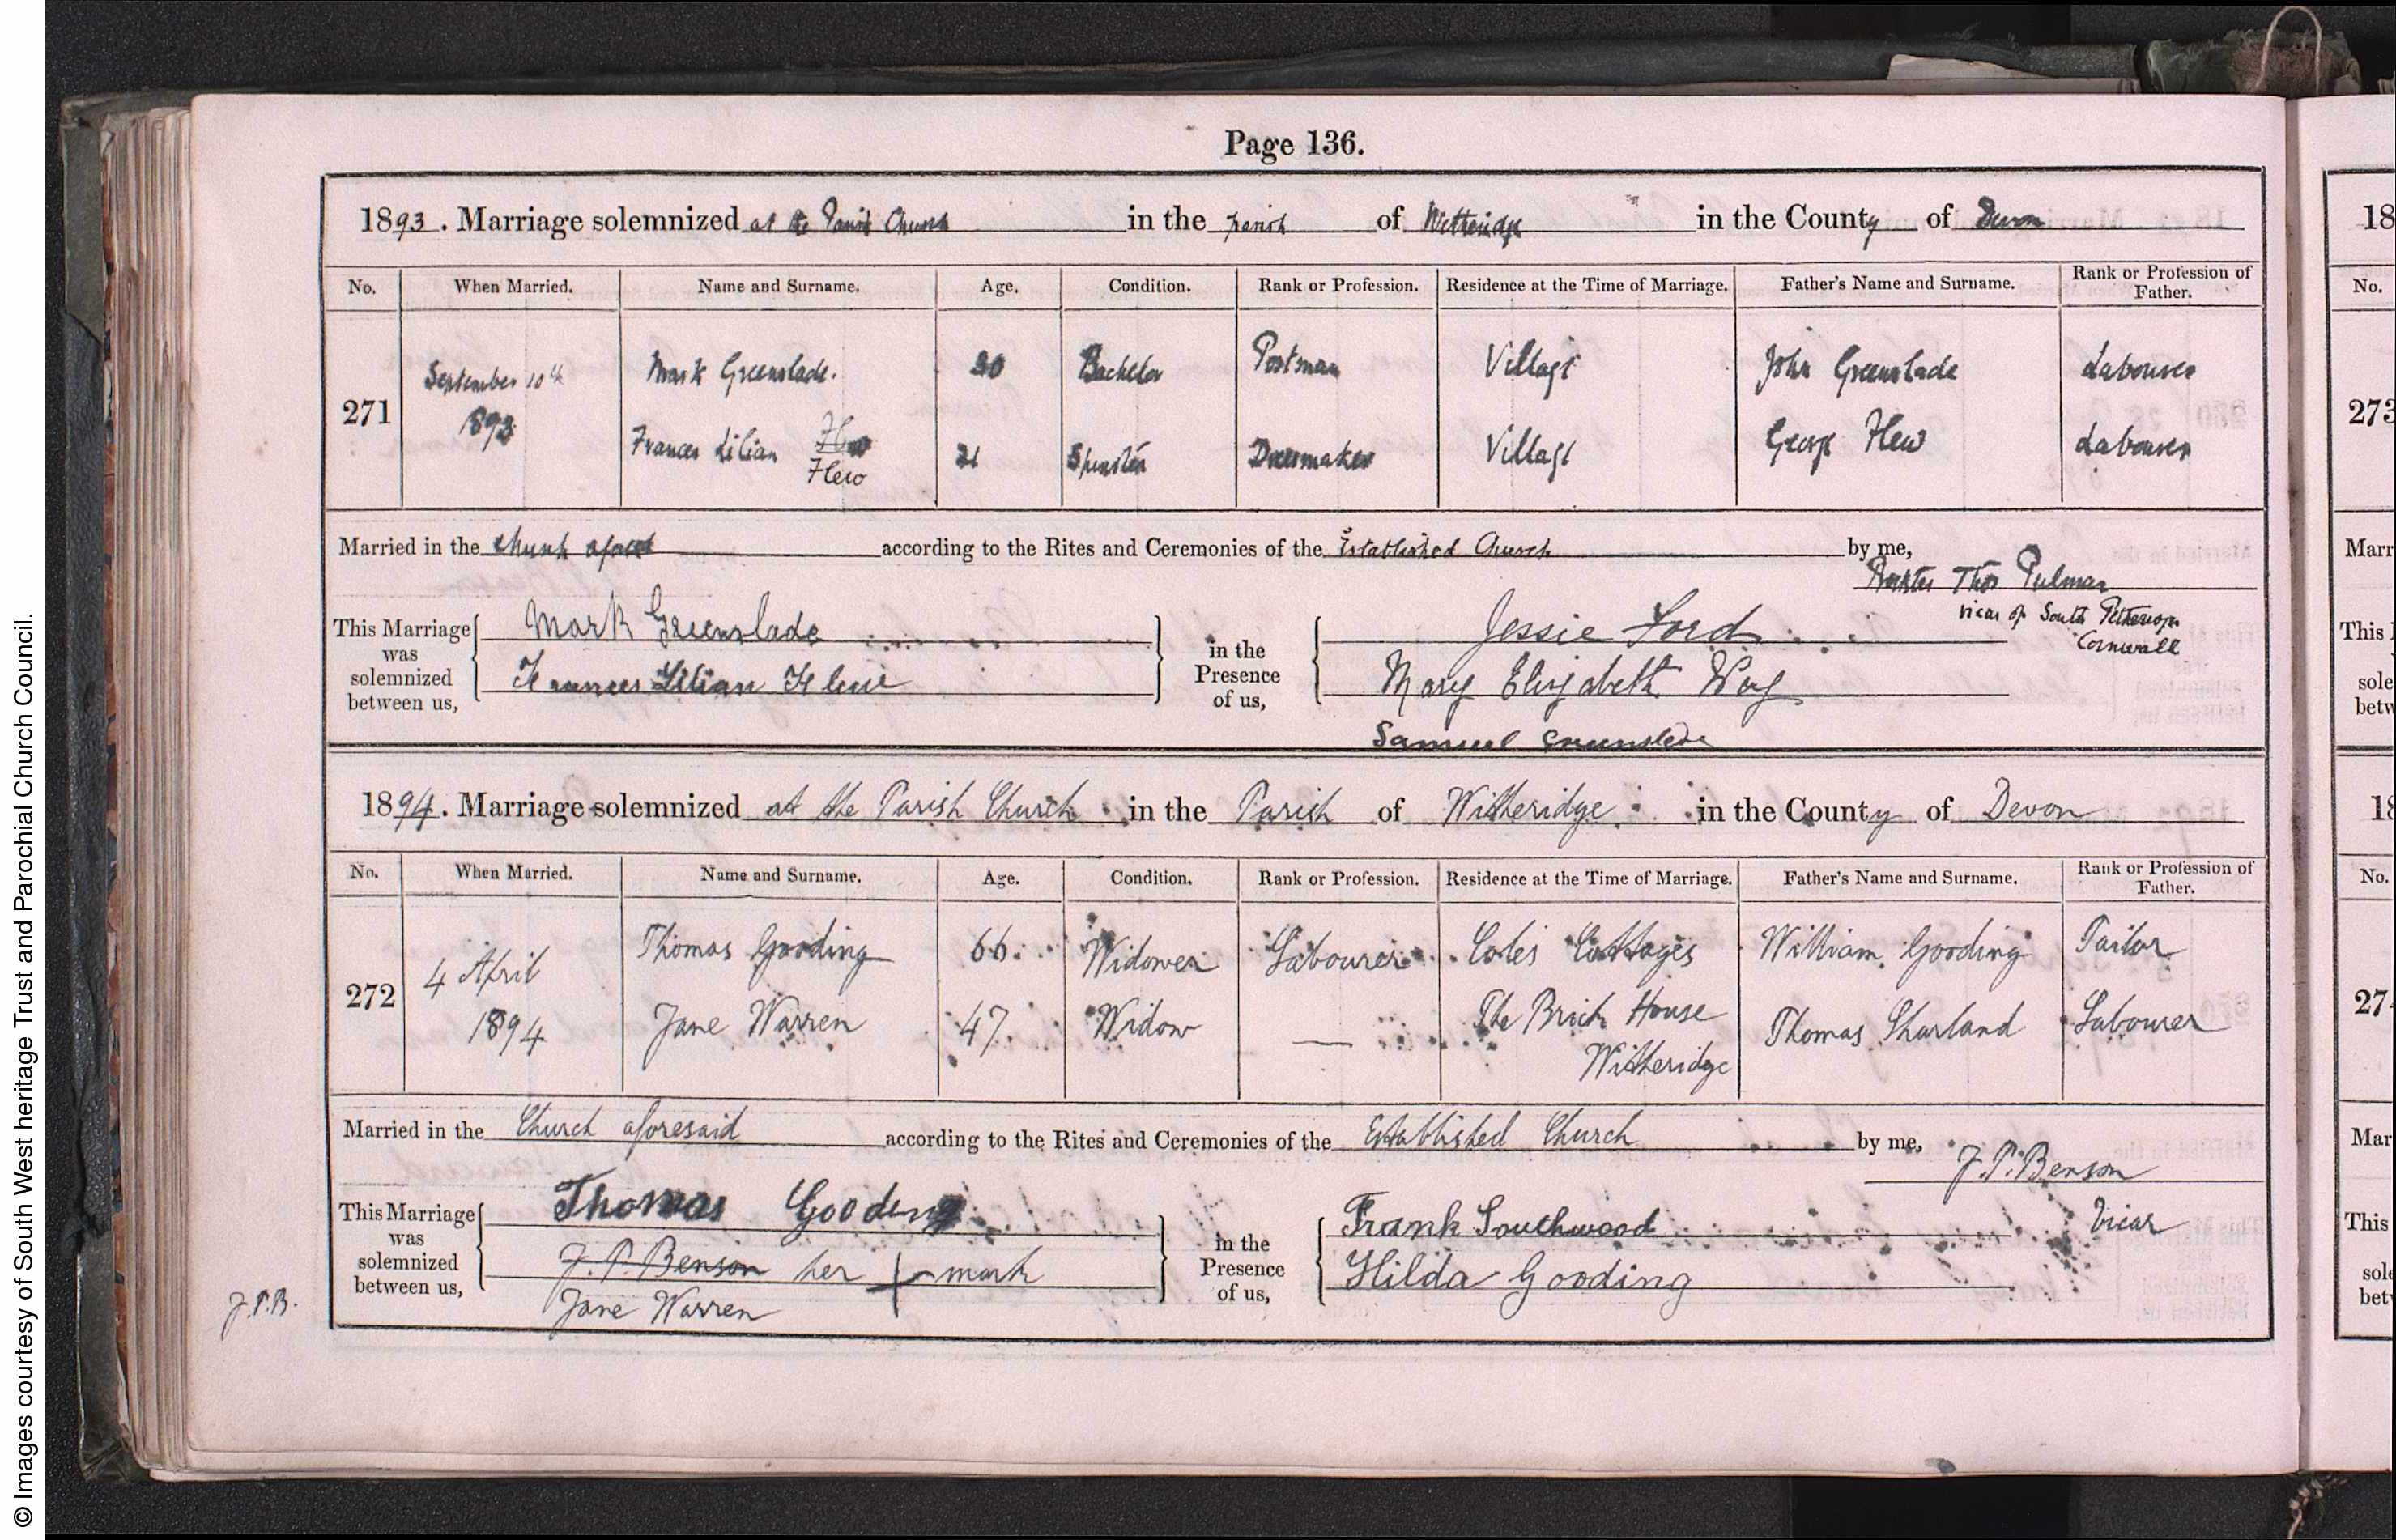 Page 136.
1893. Marriage solemnized at the Parish Church in the parish of Witheridge in the County of Devon
No. When Married. Name and Surname. Age. Condition. Rank or Profession. Residence at the Time of Marriage. Father's Name and Surname. Rank or Profession of Father.
271
September 10th 1893
Mark Greenslade. Bachelor Postman Village John Greenslade Labourer
Frances Lilian Flew 21 Spinster Dressmaker Village George Flew Labourer
Flew
Married in the Church afores according to the Rites and Ceremonies of the Established Church by me,
Thos Pulman
vicar of South Petherwyn
Cornwall
This Marriage was solemnized between us,
Mark Greenslade
Frances Lilian Flew
in the Presence of us,
Jessie Ford
Mary Elizabeth Way
Samuel Greenslade
1894. Marriage solemnized at the Parish Church in the Parish of Witheridge in the County of Devon
No. When Married. Name and Surname. Age. Condition. Rank or Profession. Residence at the Time of Marriage. Father's Name and Surname. Rank or Profession of Father.
272
4 April 1894
Thomas Gooding 66. Widower Labourer Coles Cottages William Gooding Tailor
Jane Warren 47. Widow — The Brick House Witheridge Thomas Sharland Labourer
Married in the Church aforesaid according to the Rites and Ceremonies of the Established Church by me,
J.P. Benson
Vicar
This Marriage was solemnized between us,
Thomas Gooding
J. P. Benson her + mark
Jane Warren
in the Presence of us,
Frank Southwood
Hilda Gooding
J.P.B.
18
No.
273
Marr
This
sole
betw
18
No.
27
Mar
This
sole
bet
© Images courtesy of South West heritage Trust and Parochial Church Council.